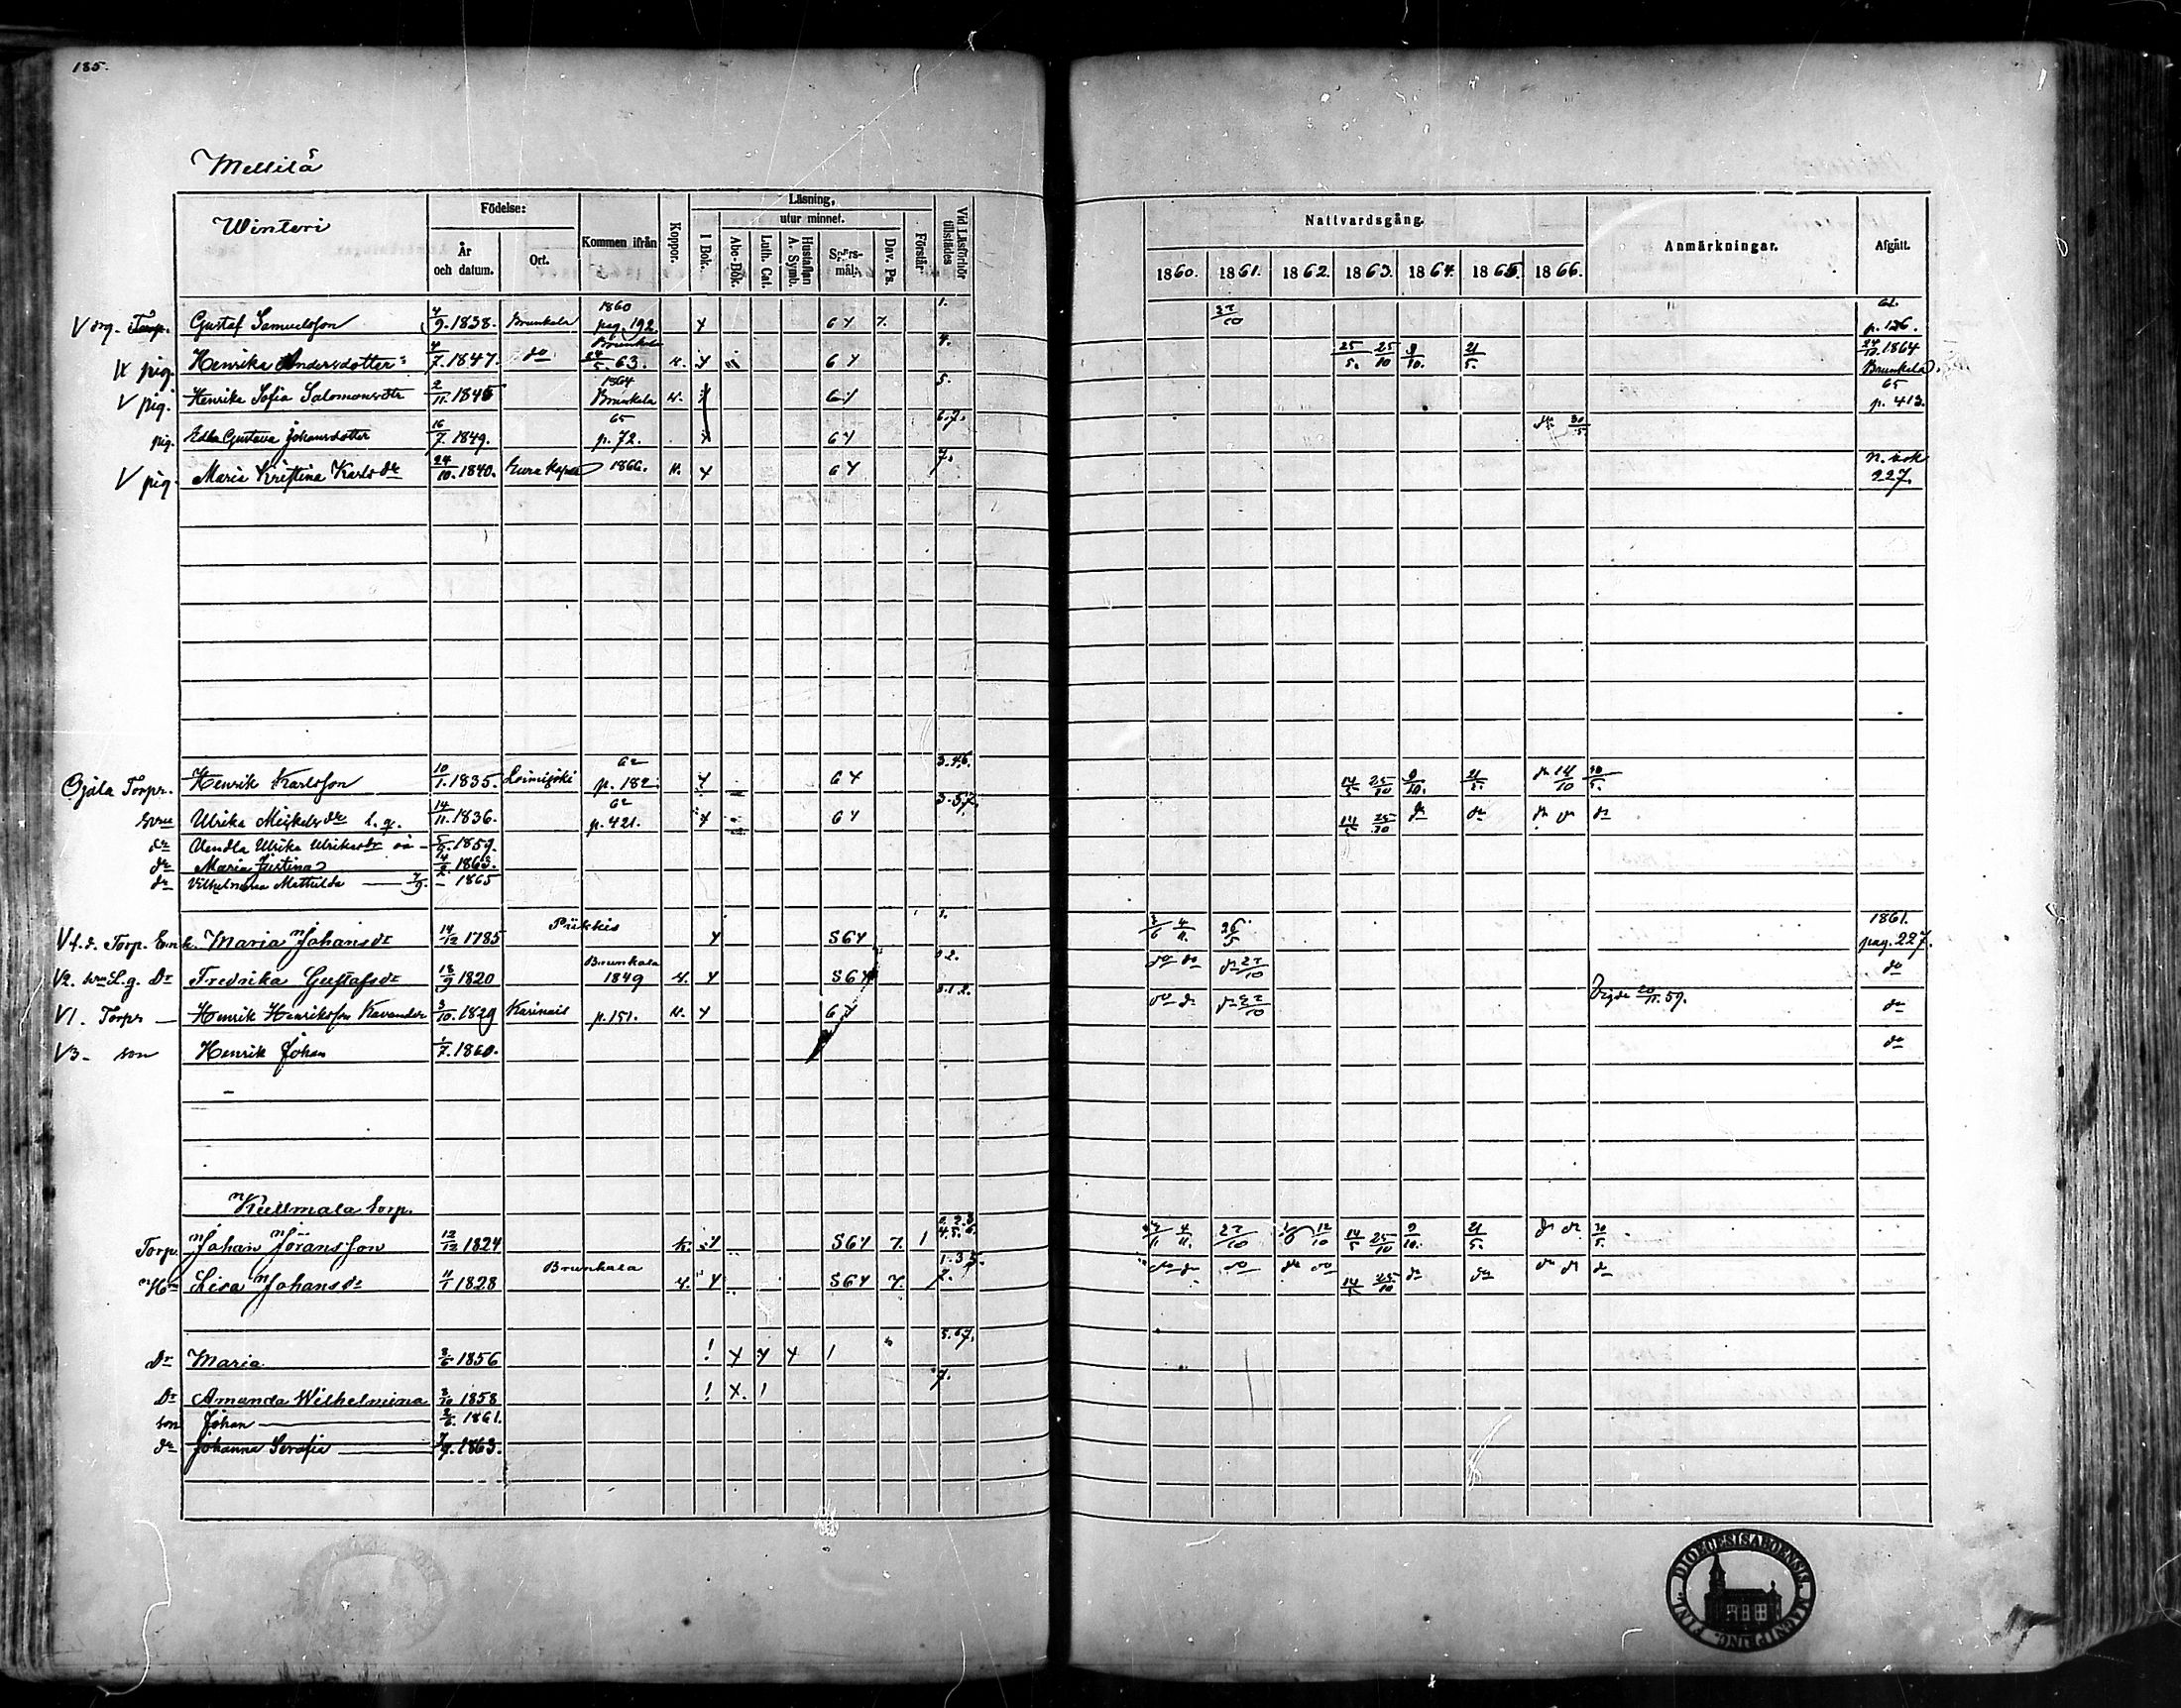 185.
Mellilä
Winteri
Födelse:
År och datum.
Ort.
Kommen ifrån
Koppor.
Läsning,
I Bok.
utur minnet.
Abc-Bok.
Luth. Cat.
Hustaflan A. Symb.
Spörs-mål.
Dav. Ps.
Förstår
Vid Läsförhör tillstädes
Nattvardsgång.
1860. 1861. 1862. 1863. 1864. 1865. 1866.
Anmärkningar.
Afgått.
V drg. Gustaf Samuelsson 4/9. 1838. Brunkala 1860 pag. 192 Y 6 Y 7. 1. 27/10 61. p. 126.
pig. Henrika Andersdotter 4/7. 1847. do Brunkala 24/5. 63. Y 6 Y 4. 25/5. 25/10 9/10. 21/5. 24/10 1864 Brunkala
V pig. Henrika Sofia Salomonsdtr 2/11. 1845 1864 Brunkala 6 Y 5. 65 p. 413.
pig. Edla Gustava Johansdotter 16/7. 1849. 65 p. 72. 6 Y 6.7. 30/5
V pig. Maria Kristina Karlsdr 24/10. 1840. Eura Kapell 1866. Y 6 Y 7. n. bok 227.
Ojala Torpr. Henrik Karlsson 10/1. 1835. Loimijoki 62 p. 182 Y 6 Y 3.4.6. 14/5 25/10 9/10. 21/5. dr 14/10 30/5.
Ulrika Mickelsdr l. q. 14/11. 1836. 62 p. 421. Y 6 Y 3.5.7. 14/5 25/10 do do do do do
dr Vendla Ulrika Ulriksdr oä 5/2. 1859.
dr Maria Justina 14/2. 1863.
dr Vilhelmina Mathilda 7/9. 1865
V4. d. Torp. Enk. Maria Johansdr 14/12 1785 Piikkis Y S 6 Y 1. 3/6 4/11. 26/5 1861. pag. 227.
V2. L. q. Dr Fredrika Gustafsdr 18/9 1820 Brunkala 1849 Y S 6 Y 2. do do 27/10 do
V1. Torpr Henrik Henriksson Kavander 3/10. 1829 Karinais p. 151. Y 6 Y 1.2. do do 27/10 Vigde 20/11. 59. do
V3 son Henrik Johan 1/7. 1860. do
Kullmala torp.
Torp. Johan Jöransson 12/12 1824 Y S 6 Y 7. 1 4.5.6. 4/11. 27/10 12/10 14/5 25/10 9/10. 21/5. do do 30/5.
Hu Lisa Johansdr 11/1 1828 Brunkala Y S 6 Y 7. 1 1.3.5. 7. do do do do do 14/5 25/10 do do do do do
Dr Maria 3/6 1856 ! Y Y Y 1 5.6.7.
Dr Amanda Wilhelmina 3/10 1858 ! X. ! 7.
son Johan 2/6. 1861.
dr Johanna Serafia 1863.
DIOECESIS ABOENSIS. MAGNI PRINC. FINL.